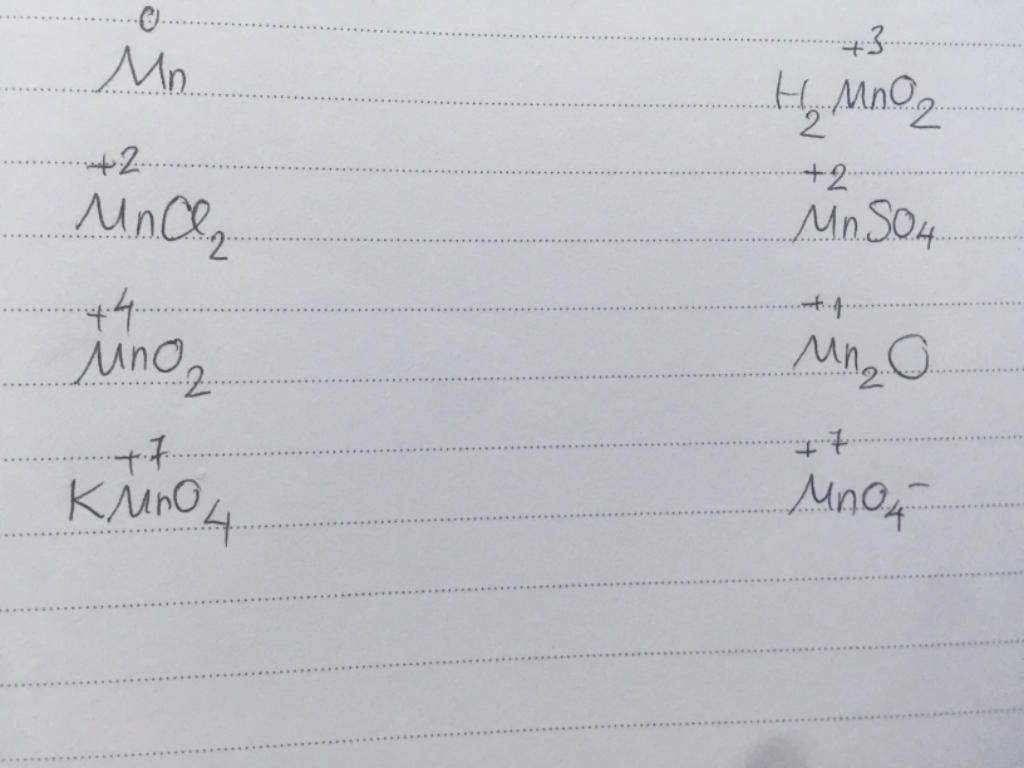 0
Mn
+2
MnCl₂
+4
MnO₂
+7
KMnO₄
+3
H₂MnO₂
+2
MnSO₄
+1
Mn₂O
+7
MnO₄⁻